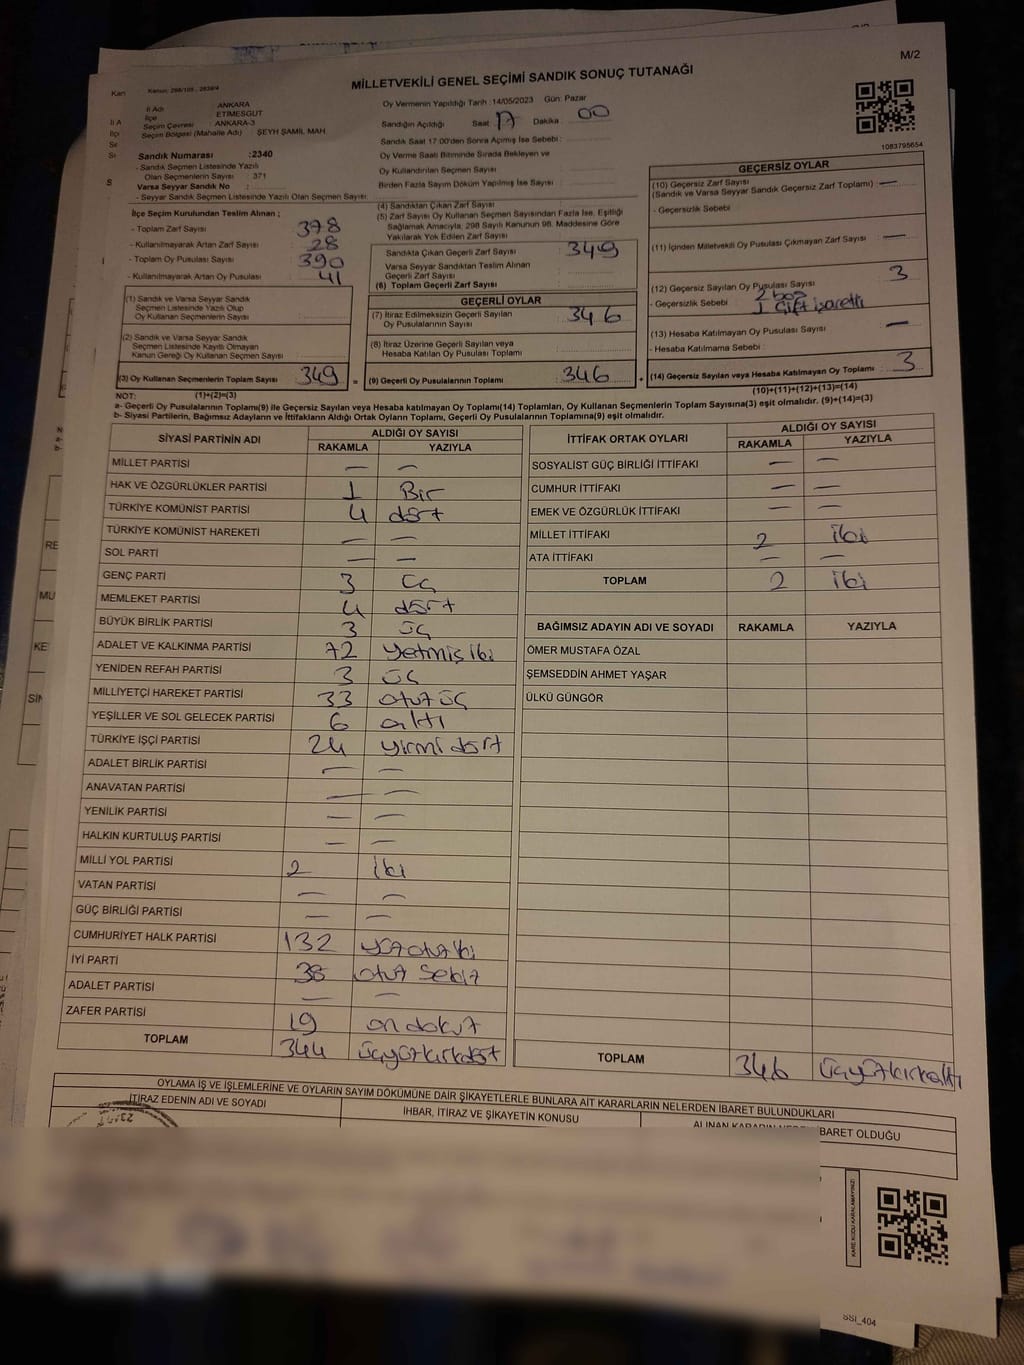 M/2
MİLLETVEKİLİ GENEL SEÇİMİ SANDIK SONUÇ TUTANAĞI
İl Adı : ANKARA
İlçe : ETİMESGUT
Seçim Çevresi : ANKARA-3
Seçim Bölgesi (Mahalle Adı) : ŞEYH ŞAMİL MAH
Sandık Numarası :2340
- Sandık Seçmen Listesinde Yazılı
Olan Seçmenlerin Sayısı : 371
Varsa Seyyar Sandık No :
- Seyyar Sandık Seçmen Listesinde Yazılı Olan Seçmen Sayısı
İlçe Seçim Kurulundan Teslim Alınan ;
- Toplam Zarf Sayısı : 378
- Kullanılmayarak Artan Zarf Sayısı : 28
- Toplam Oy Pusulası Sayısı : 390
- Kullanılmayarak Artan Oy Pusulası : 41
(1) Sandık ve Varsa Seyyar Sandık
Seçmen Listesinde Yazılı Olup
Oy Kullanan Seçmenlerin Sayısı :
(2) Sandık ve Varsa Seyyar Sandık
Seçmen Listesinde Kayıtlı Olmayan
Kanun Gereği Oy Kullanan Seçmen Sayısı :
(3) Oy Kullanan Seçmenlerin Toplam Sayısı 349 =
Oy Vermenin Yapıldığı Tarih :14/05/2023 Gün: Pazar
Sandığın Açıldığı Saat 17 Dakika 00
Sandık Saat 17:00'den Sonra Açmış İse Sebebi :
Oy Verme Saati Bitiminde Sırada Bekleyen ve
Oy Kullandırılan Seçmen Sayısı
Birden Fazla Sayım Döküm Yapılmış İse Sayısı
(4) Sandıktan Çıkan Zarf Sayısı
(5) Zarf Sayısı Oy Kullanan Seçmen Sayısından Fazla İse, Eşitliği
Sağlamak Amacıyla; 298 Sayılı Kanunun 98. Maddesine Göre
Yakılarak Yok Edilen Zarf Sayısı
Sandıkta Çıkan Geçerli Zarf Sayısı : 349
Varsa Seyyar Sandıktan Teslim Alınan
Geçerli Zarf Sayısı
(6) Toplam Geçerli Zarf Sayısı :
GEÇERLİ OYLAR
(7) İtiraz Edilmeksizin Geçerli Sayılan
Oy Pusulalarının Sayısı : 346
(8) İtiraz Üzerine Geçerli Sayılan veya
Hesaba Katılan Oy Pusulası Toplamı :
(9) Geçerli Oy Pusulalarının Toplamı : 346 +
1083795654
GEÇERSİZ OYLAR
(10) Geçersiz Zarf Sayısı —
(Sandık ve Varsa Seyyar Sandık Geçersiz Zarf Toplamı)
- Geçersizlik Sebebi :
(11) İçinden Milletvekili Oy Pusulası Çıkmayan Zarf Sayısı —
(12) Geçersiz Sayılan Oy Pusulası Sayısı 3
- Geçersizlik Sebebi : 2 boş
1 çift işaretli
(13) Hesaba Katılmayan Oy Pusulası Sayısı —
- Hesaba Katılmama Sebebi :
(14) Geçersiz Sayılan veya Hesaba Katılmayan Oy Toplamı 3
NOT: (1)+(2)=(3) (10)+(11)+(12)+(13)=(14)
a- Geçerli Oy Pusulalarının Toplamı(9) ile Geçersiz Sayılan veya Hesaba katılmayan Oy Toplamı(14) Toplamları, Oy Kullanan Seçmenlerin Toplam Sayısına(3) eşit olmalıdır. (9)+(14)=(3)
b- Siyasi Partilerin, Bağımsız Adayların ve İttifakların Aldığı Ortak Oyların Toplamı, Geçerli Oy Pusulalarının Toplamına(9) eşit olmalıdır.
SİYASİ PARTİNİN ADI ALDIĞI OY SAYISI
RAKAMLA YAZIYLA
MİLLET PARTİSİ — —
HAK VE ÖZGÜRLÜKLER PARTİSİ 1 Bir
TÜRKİYE KOMÜNİST PARTİSİ 4 dört
TÜRKİYE KOMÜNİST HAREKETİ — —
SOL PARTİ — —
GENÇ PARTİ 3 üç
MEMLEKET PARTİSİ 4 dört
BÜYÜK BİRLİK PARTİSİ 3 üç
ADALET VE KALKINMA PARTİSİ 72 yetmiş iki
YENİDEN REFAH PARTİSİ 3 üç
MİLLİYETÇİ HAREKET PARTİSİ 33 otuz üç
YEŞİLLER VE SOL GELECEK PARTİSİ 6 altı
TÜRKİYE İŞÇİ PARTİSİ 24 yirmi dört
ADALET BİRLİK PARTİSİ — —
ANAVATAN PARTİSİ — —
YENİLİK PARTİSİ — —
HALKIN KURTULUŞ PARTİSİ — —
MİLLİ YOL PARTİSİ 2 iki
VATAN PARTİSİ — —
GÜÇ BİRLİĞİ PARTİSİ — —
CUMHURİYET HALK PARTİSİ 132 yüz otuz iki
İYİ PARTİ 38 otuz sekiz
ADALET PARTİSİ — —
ZAFER PARTİSİ 19 on dokuz
TOPLAM 344 üçyüzkırkdört
İTTİFAK ORTAK OYLARI ALDIĞI OY SAYISI
RAKAMLA YAZIYLA
SOSYALİST GÜÇ BİRLİĞİ İTTİFAKI — —
CUMHUR İTTİFAKI — —
EMEK VE ÖZGÜRLÜK İTTİFAKI — —
MİLLET İTTİFAKI 2 iki
ATA İTTİFAKI — —
TOPLAM 2 iki
BAĞIMSIZ ADAYIN ADI VE SOYADI RAKAMLA YAZIYLA
ÖMER MUSTAFA ÖZAL
ŞEMSEDDİN AHMET YAŞAR
ÜLKÜ GÜNGÖR
TOPLAM 346 üçyüzkırkaltı
OYLAMA İŞ VE İŞLEMLERİNE VE OYLARIN SAYIM DÖKÜMÜNE DAİR ŞİKAYETLERLE BUNLARA AİT KARARLARIN NELERDEN İBARET BULUNDUKLARI
İTİRAZ EDENİN ADI VE SOYADI İHBAR, İTİRAZ VE ŞİKAYETİN KONUSU ALINAN KARARIN İBARET OLDUĞU
KARE KODU KARALAMAYINIZ!
SSİ_404